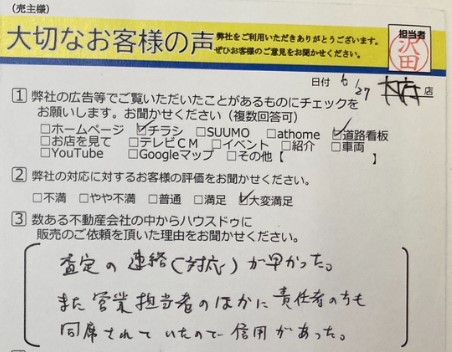 (売主様)
大切なお客様の声
弊社をご利用いただきありがとうございます。
ぜひお客様のご意見をお聞かせください。
担当者
沢田
日付 6/27 店
1 弊社の広告等でご覧いただいたことがあるものにチェックを
お願いします。お聞かせください(複数回答可)
□ホームページ ☑チラシ □SUUMO □athome ☑道路看板
□お店を見て □テレビCM □イベント □紹介 □車両
□YouTube □Googleマップ □その他【 】
2 弊社の対応に対するお客様の評価をお聞かせください。
□不満 □やや不満 □普通 □満足 ☑大変満足
3 数ある不動産会社の中からハウスドゥに
販売のご依頼を頂いた理由をお聞かせください。
査定の連絡(対応)が早かった。
また営業担当者のほかに責任者の方も
同席されていたので信用があった。